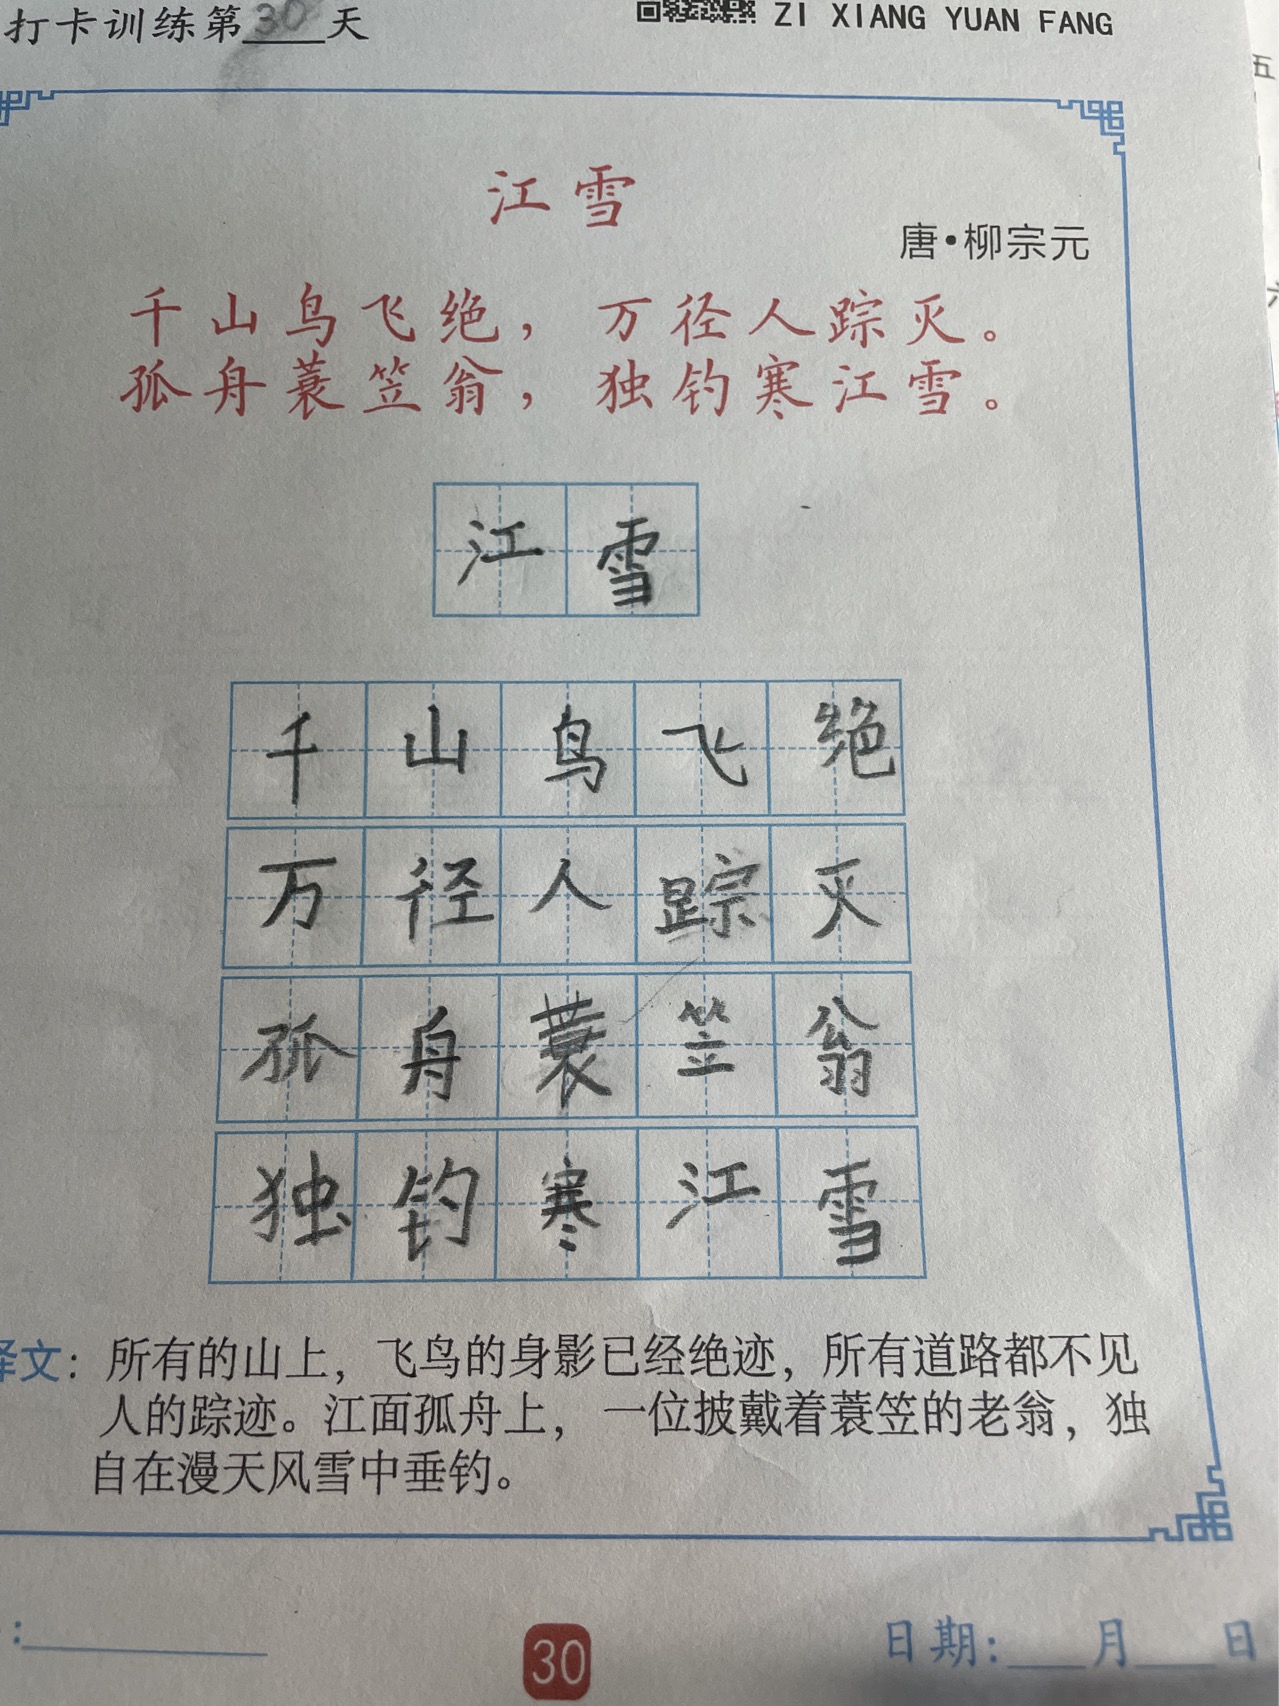 打卡训练第30天
ZI XIANG YUAN FANG
江雪
唐·柳宗元
千山鸟飞绝，万径人踪灭。
孤舟蓑笠翁，独钓寒江雪。
江雪
千山鸟飞绝
万径人踪灭
孤舟蓑笠翁
独钓寒江雪
译文：所有的山上，飞鸟的身影已经绝迹，所有道路都不见
人的踪迹。江面孤舟上，一位披戴着蓑笠的老翁，独
自在漫天风雪中垂钓。
30
日期：___月___日
五